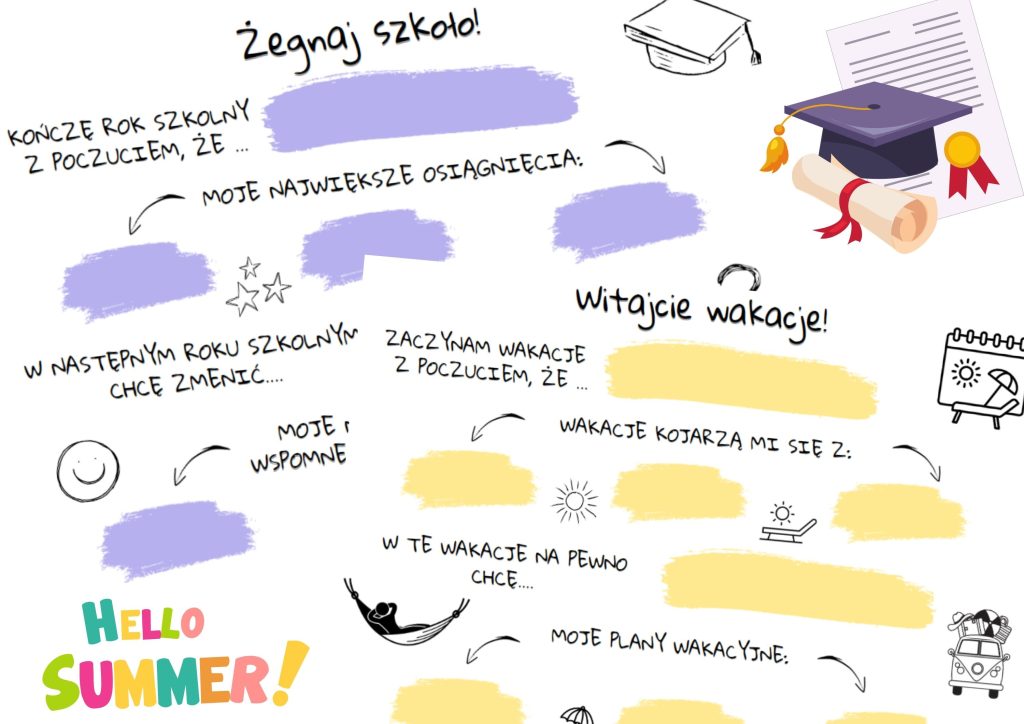 Żegnaj szkoło!
KOŃCZĘ ROK SZKOLNY
Z POCZUCIEM, ŻE ...
MOJE NAJWIĘKSZE OSIĄGNIĘCIA:
W NASTĘPNYM ROKU SZKOLNYM
CHCĘ ZMENIĆ....
MOJE
Witajcie wakacje!
ZACZYNAM WAKACJE
Z POCZUCIEM, ŻE ...
WAKACJE KOJARZĄ MI SIĘ Z:
W TE WAKACJE NA PEWNO
CHCĘ....
MOJE PLANY WAKACYJNE:
HELLO
SUMMER!